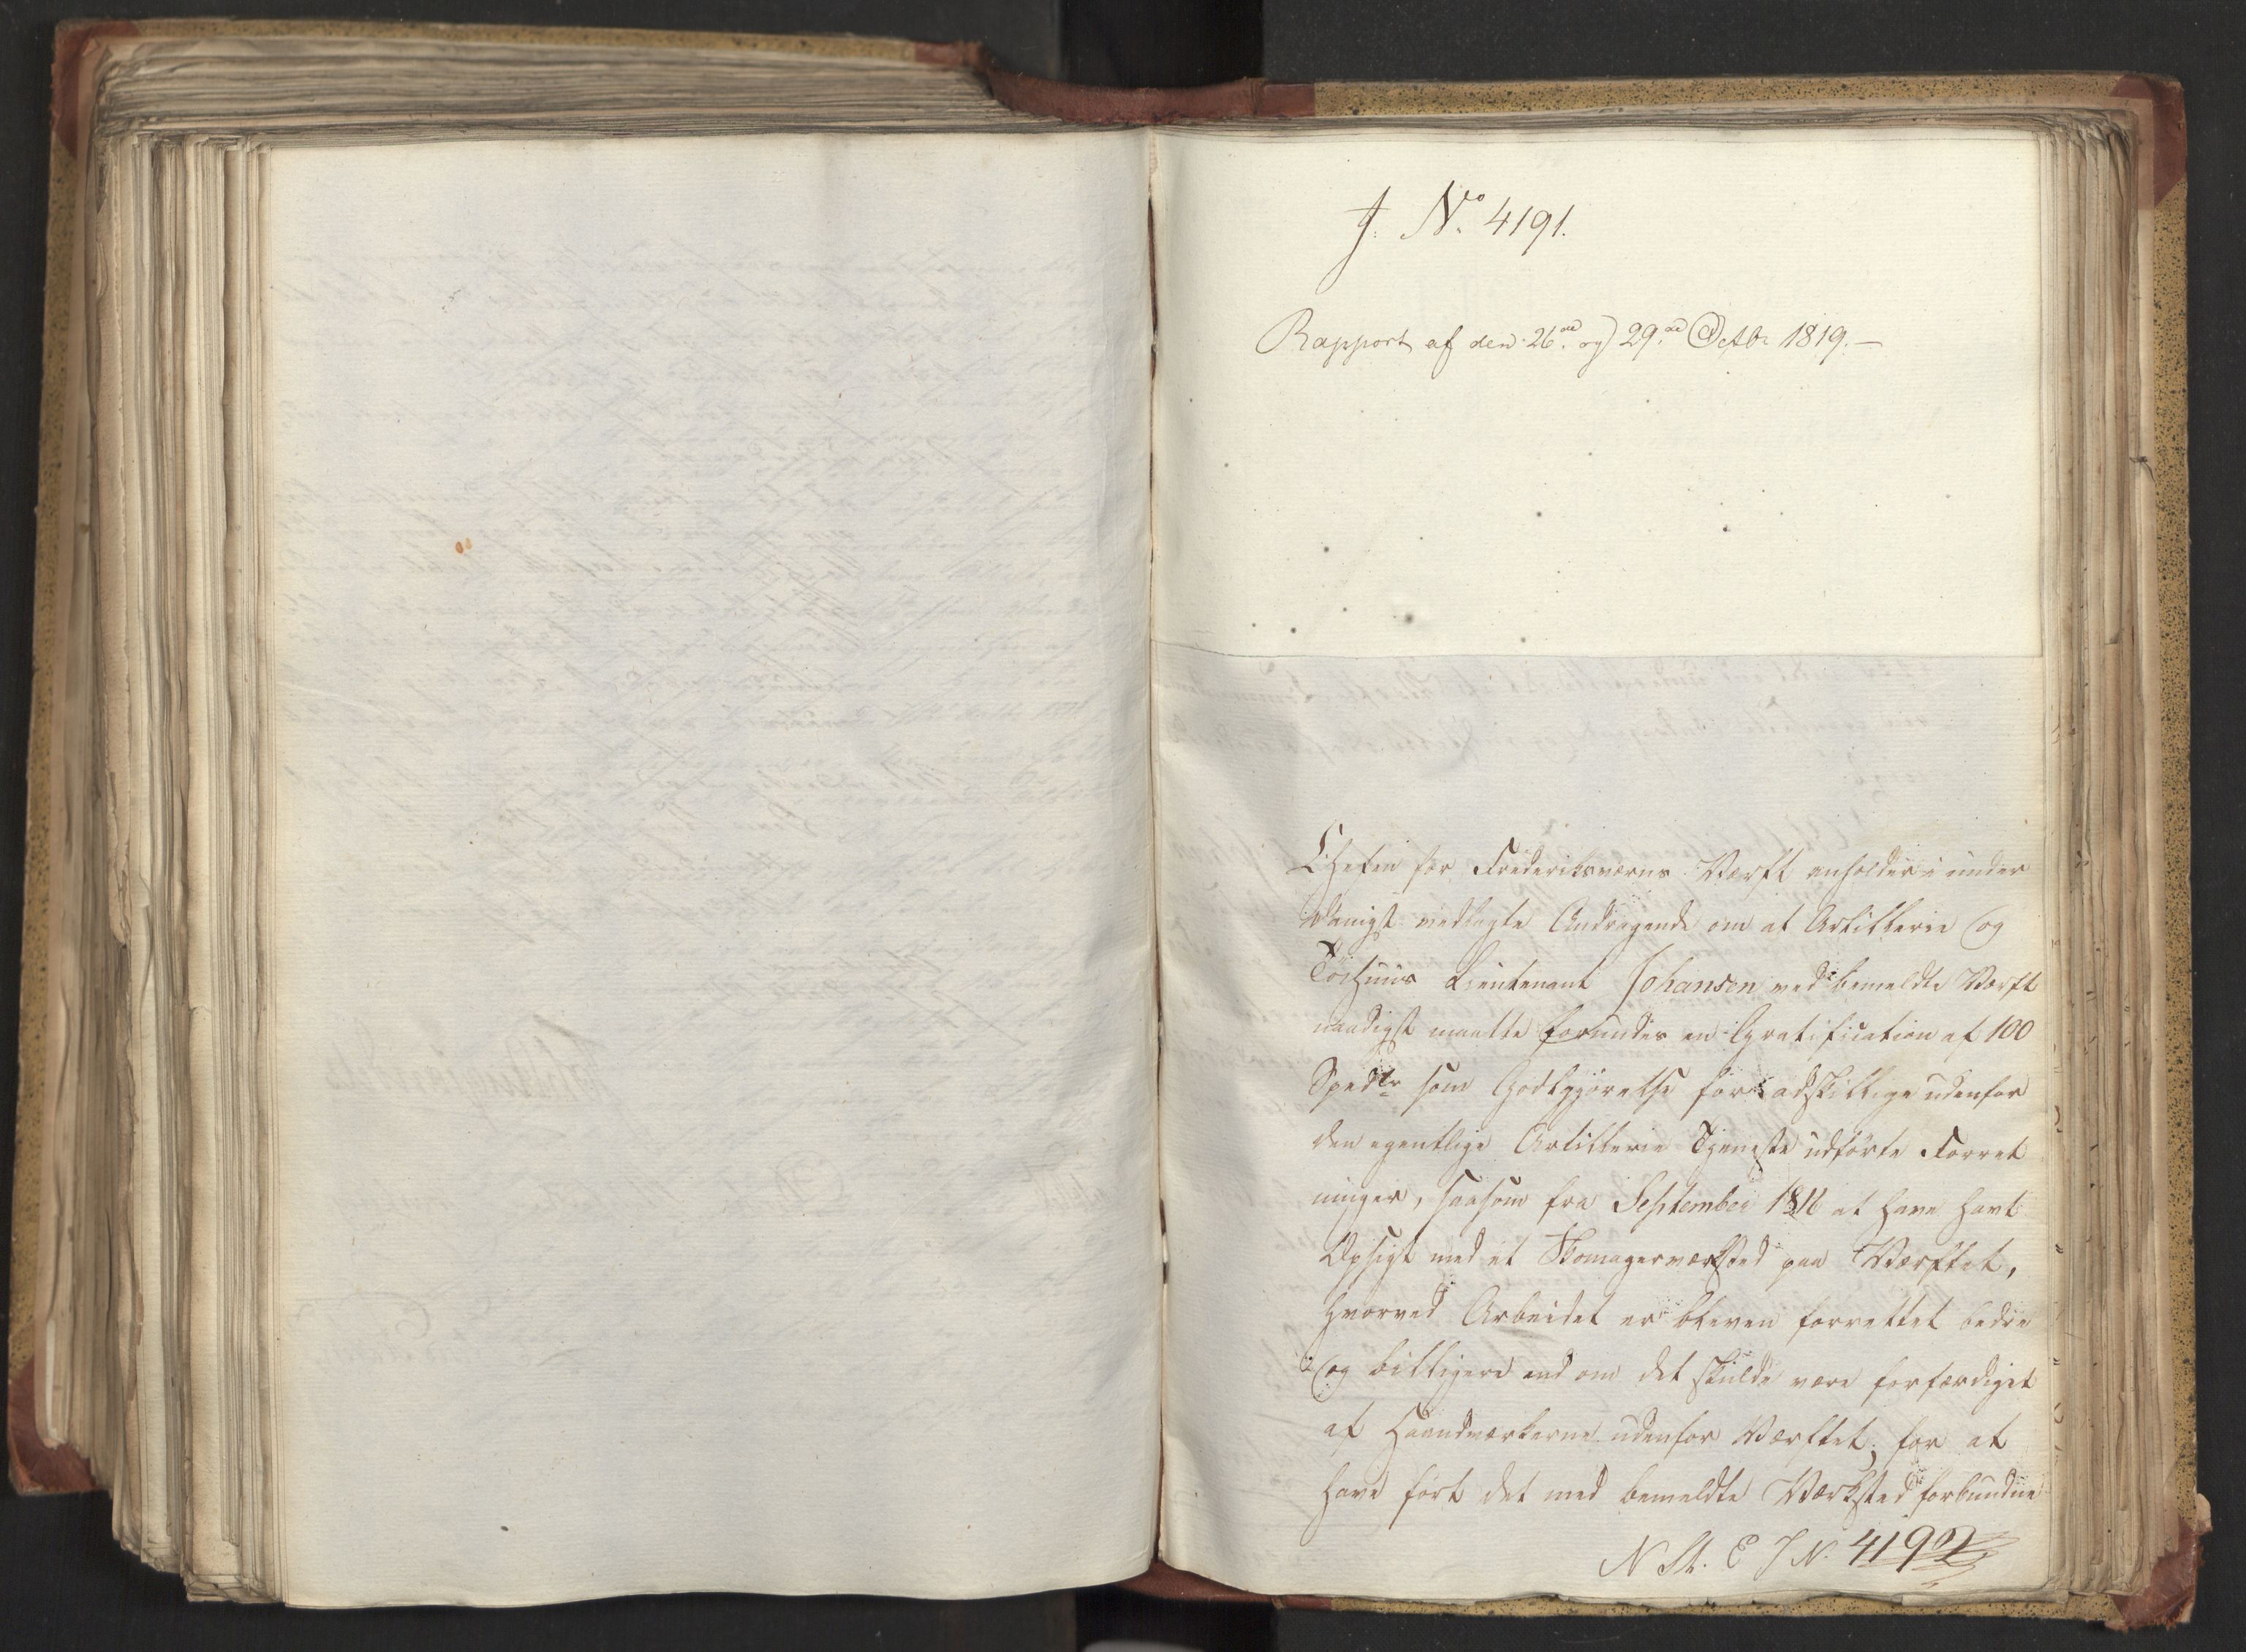 J. No 4191.
Rapport af den 26de og 29de Octbr 1819.—
Chefen for Frideriksværns Værft anholder i under
danigst vedlagte Andragende om at Artillerie og
Töihuus Lieutenant Johansen ved bemeldte Værft
naadigst maatte forundes en Gratification af 100
Spedlr som Godtgjörelse for adskillige udenfor
den egentlige Artillerie Tjeneste udförte Forret
ninger, saasom fra September 1816 at have havt
Opsigt med et Skomagerværksted paa Værftet,
hvorved Arbeidet er bleven forrettet bedre
og billigere end om det skulde være forfærdiget
af Haandværkerne udenfor Værftet; for at
have fört det med bemeldte Værksted forbundne
N St. E J N. 4192